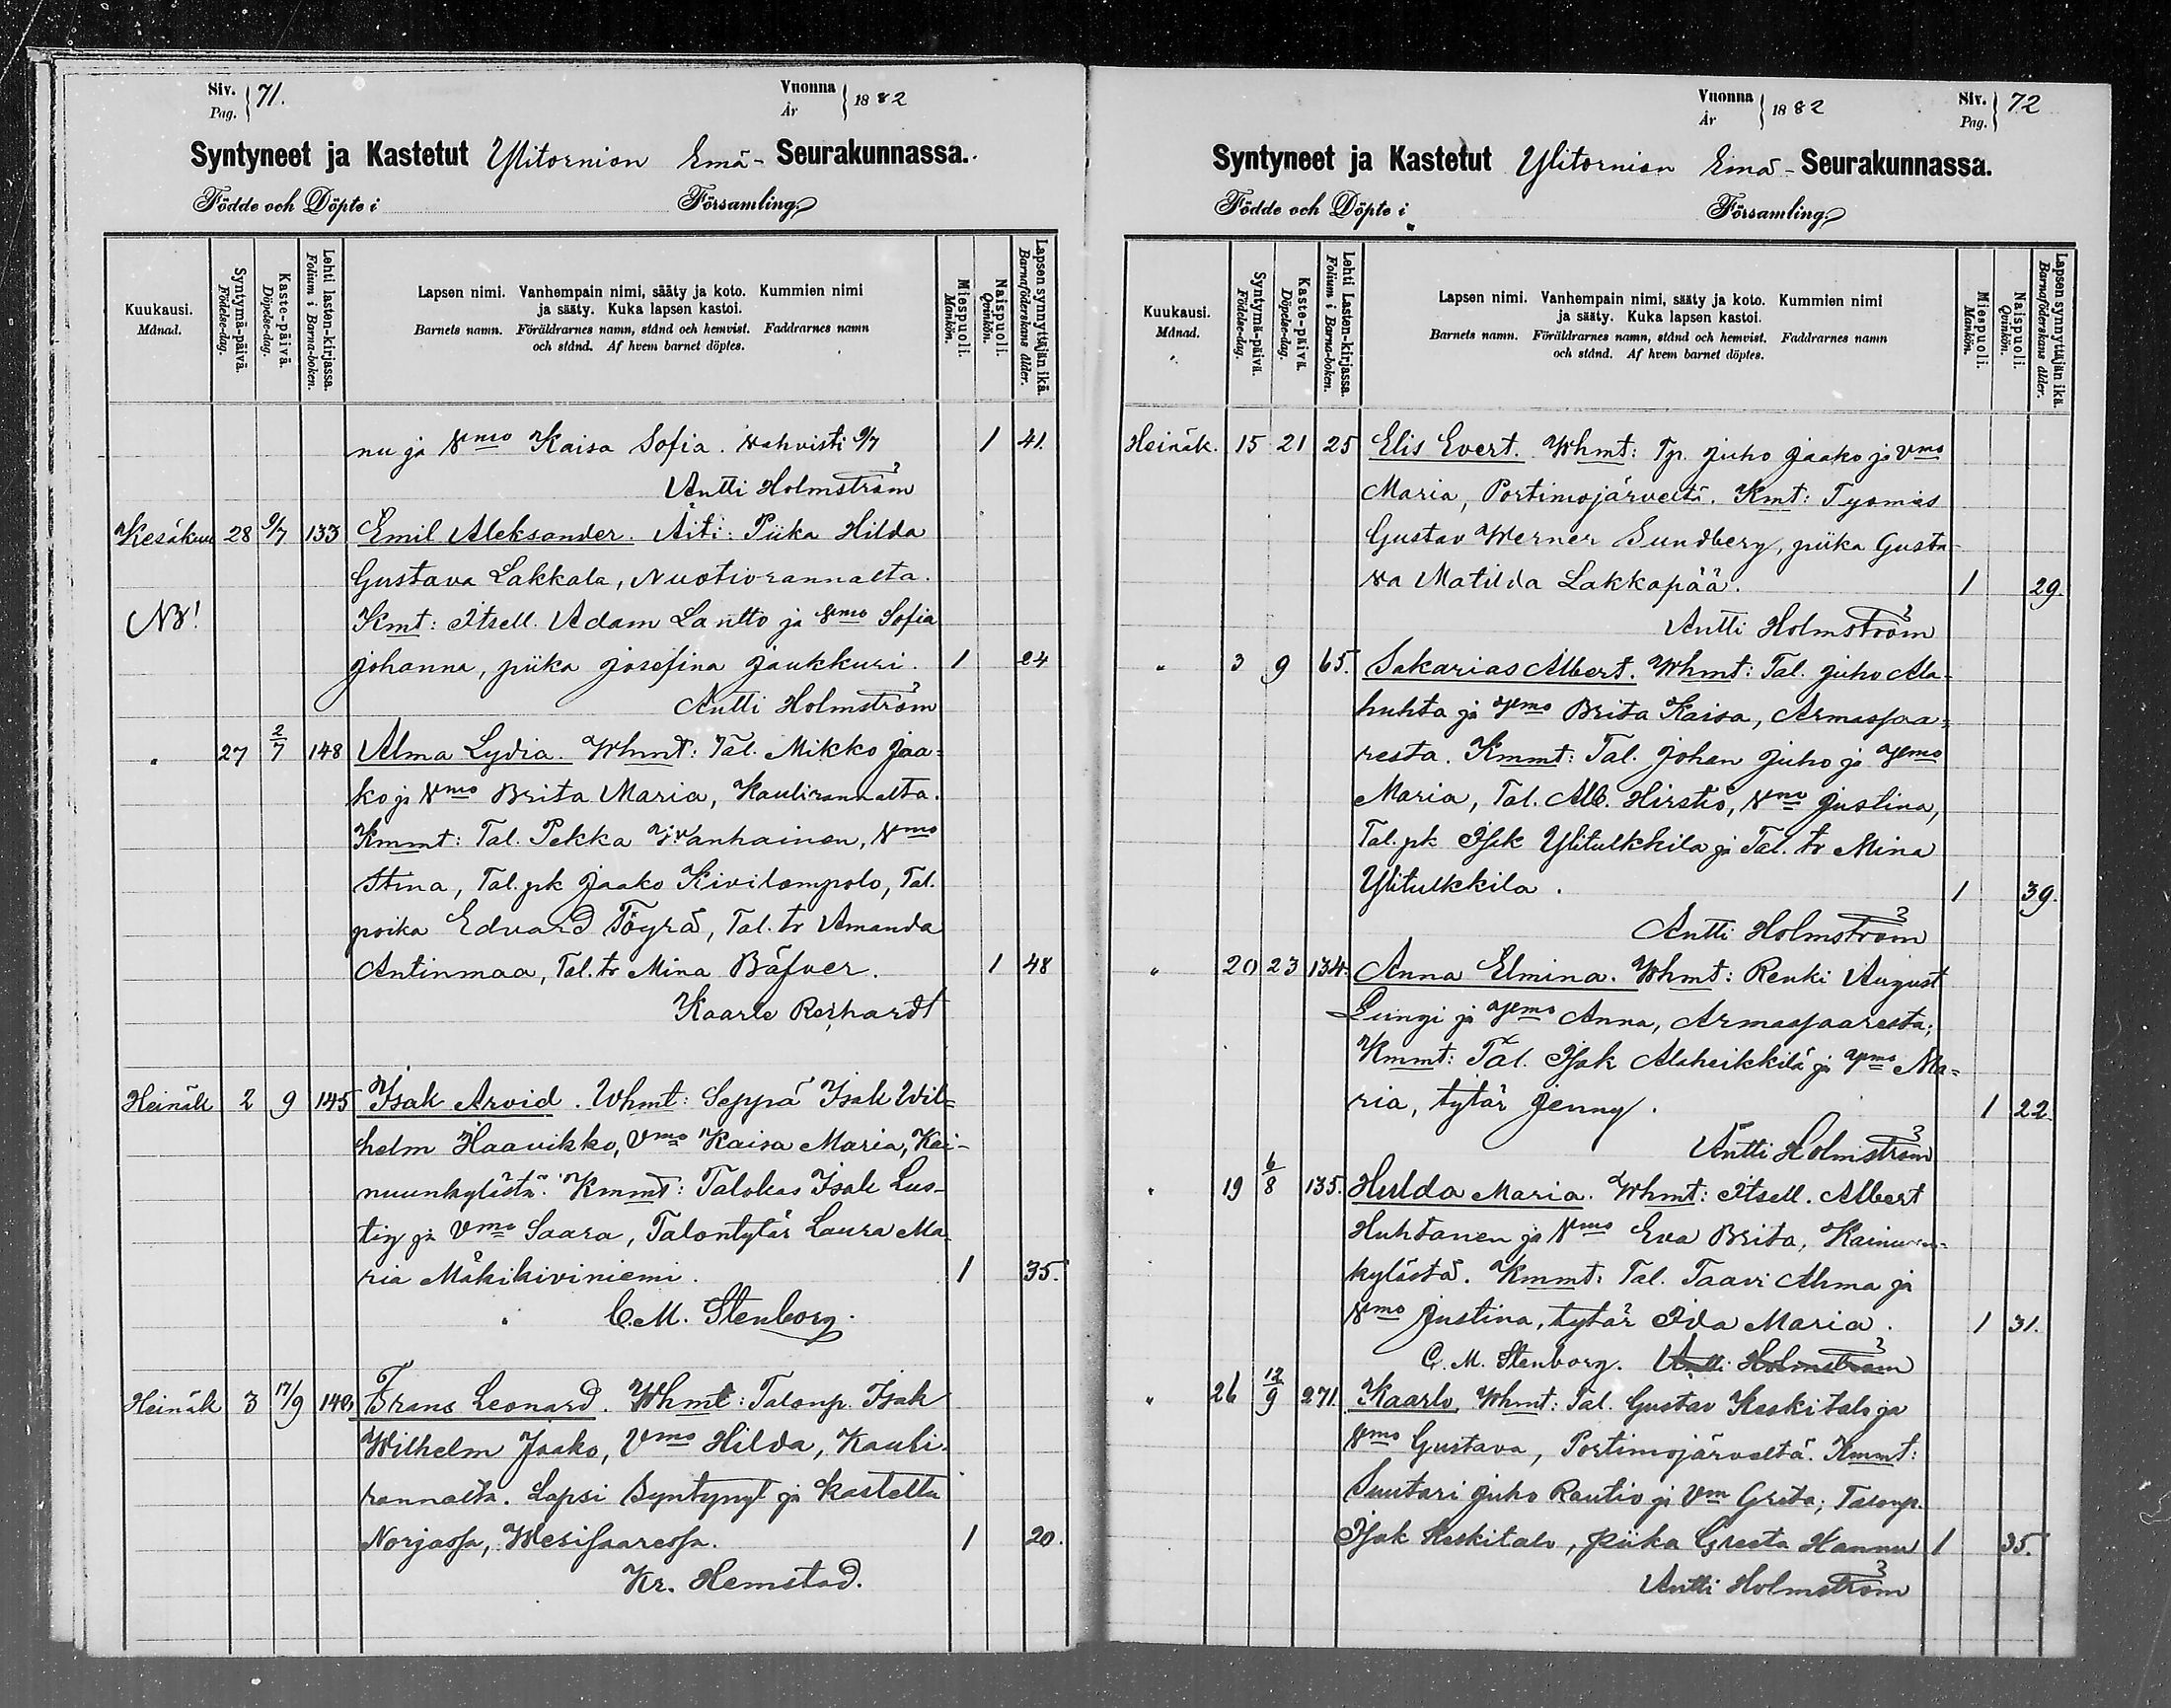 Siv. Pag. } 71.
Vuonna År } 1882
Syntyneet ja Kastetut Ylitornion Emä- Seurakunnassa.
Födde och Döpte i Församling
Kuukausi. Månad.
Syntymä-päivä. Födelse-dag.
Kaste-päivä. Döpelse-dag.
Lehti lasten-kirjassa. Folium i Barna-boken.
Lapsen nimi. Vanhempain nimi, sääty ja koto. Kummien nimi
ja sääty. Kuka lapsen kastoi.
Barnets namn. Föräldrarnes namn, stånd och hemvist. Faddrarnes namn
och stånd. Af hvem barnet döptes.
Miespuoli. Mankön.
Naispuoli. Qvinkön.
Lapsen synnyttäjän ikä. Barnaföderskans ålder.
nu ja Vmo Kaisa Sofia. vahvisti 9/7 1 41.
Antti Holmström
Kesäkuu 28 9/7 133 Emil Aleksander. Äiti: Piika Hilda
Gustava Lakkala, Nuotiorannalta.
NB! Kmt: Itsell. Adam Lantto ja Vmo Sofia
Johanna, piika Josefina Jaukkuri. 1 24
Antti Holmström
" 27 2/7 148 Alma Lydia. Whmt: Tal. Mikko Jaa-
ko ja Vmo Brita Maria, Kaulirannalta.
Kmmt: Tal. Pekka Vanhainen, Vmo
Stina, Tal. pk Jaako Kivilompolo, Tal.
poika Edvard Töyrä, Tal. tr Amanda
Antinmaa, Tal. tr Mina Bäfver. 1 48
Kaarle Rechardt
Heinäk 2 9 145 Isak Arvid. Whmt: Seppä Isak Wil-
helm Haavikko, Vmo Kaisa Maria, Kai-
nuunkylästä. Kmmt: Talokas Isak Lus-
tig ja Vmo Saara, Talontytär Laura Ma-
ria Mäkikiviniemi. 1 35.
C. M. Stenborg.
Heinäk 3 17/9 148 Frans Leonard. Whmt: Talonp. Isak
Wilhelm Jaako, Vmo Hilda, Kauli-
rannalta. Lapsi Syntynyt ja kastettu
Norjassa, Wesisaaressa. 1 20.
Kr. Hemstad.
Vuonna År } 1882
Siv. Pag. } 72
Syntyneet ja Kastetut Ylitornion Emä- Seurakunnassa.
Födde och Döpte i Församling
Kuukausi. Månad.
Syntymä-päivä. Födelse-dag.
Kaste-päivä. Döpelse-dag.
Lehti Lasten-kirjassa. Folium i Barna-boken.
Lapsen nimi. Vanhempain nimi, sääty ja koto. Kummien nimi
ja sääty. Kuka lapsen kastoi.
Barnets namn. Föräldrarnes namn, stånd och hemvist. Faddrarnes namn
och stånd. Af hvem barnet döptes.
Miespuoli. Mankön.
Naispuoli. Qvinkön.
Lapsen synnyttäjän ikä. Barnaföderskans ålder.
Heinäk. 15 21 25 Elis Evert. Whmt: Tp. Juho Jaako ja Vmo
Maria, Portimojärveltä. Kmt: Tyomies
Gustav Werner Sundberg, piika Gusta-
va Matilda Lakkapää. 1 29.
Antti Holmström
" 3 9 65. Sakarias Albert. Whmt: Tal. Juho Ala-
huhta ja Vmo Brita Kaisa, Armassaa-
resta. Kmmt: Tal. Johan Juho ja Vmo
Maria, Tal. Alb. Hirstiö, Vmo Justina,
Tal. pk Isak Ylitulkkila ja Tal. tr Mina
Ylitulkkila. 1 39.
Antti Holmström
" 20 23 134. Anna Elmina. Whmt: Renki August
Lungi ja Vmo Anna, Armassaaresta;
Kmmt: Tal. Isak Alaheikkilä ja Vmo Ma-
ria, tytär Jenny. 1 22.
Antti Holmström
" 19 6/8 135. Hulda Maria. Whmt: Itsell. Albert
Huhtanen ja Vmo Eva Brita, Kainuun-
kylästä. Kmmt: Tal. Taavi Alma ja
Vmo Justina, tytär Ida Maria. 1 31.
C. M. Stenborg. Antti Holmström
" 26 12/9 271. Kaarlo. Whmt: Tal. Gustav Keskitalo ja
Vmo Gustava, Portimojärveltä. Kmmt:
Suutari Juho Rautio ja Vm Greta; Talonp.
Isak Keskitalo, piika Greeta Hannu 1 35.
Antti Holmström